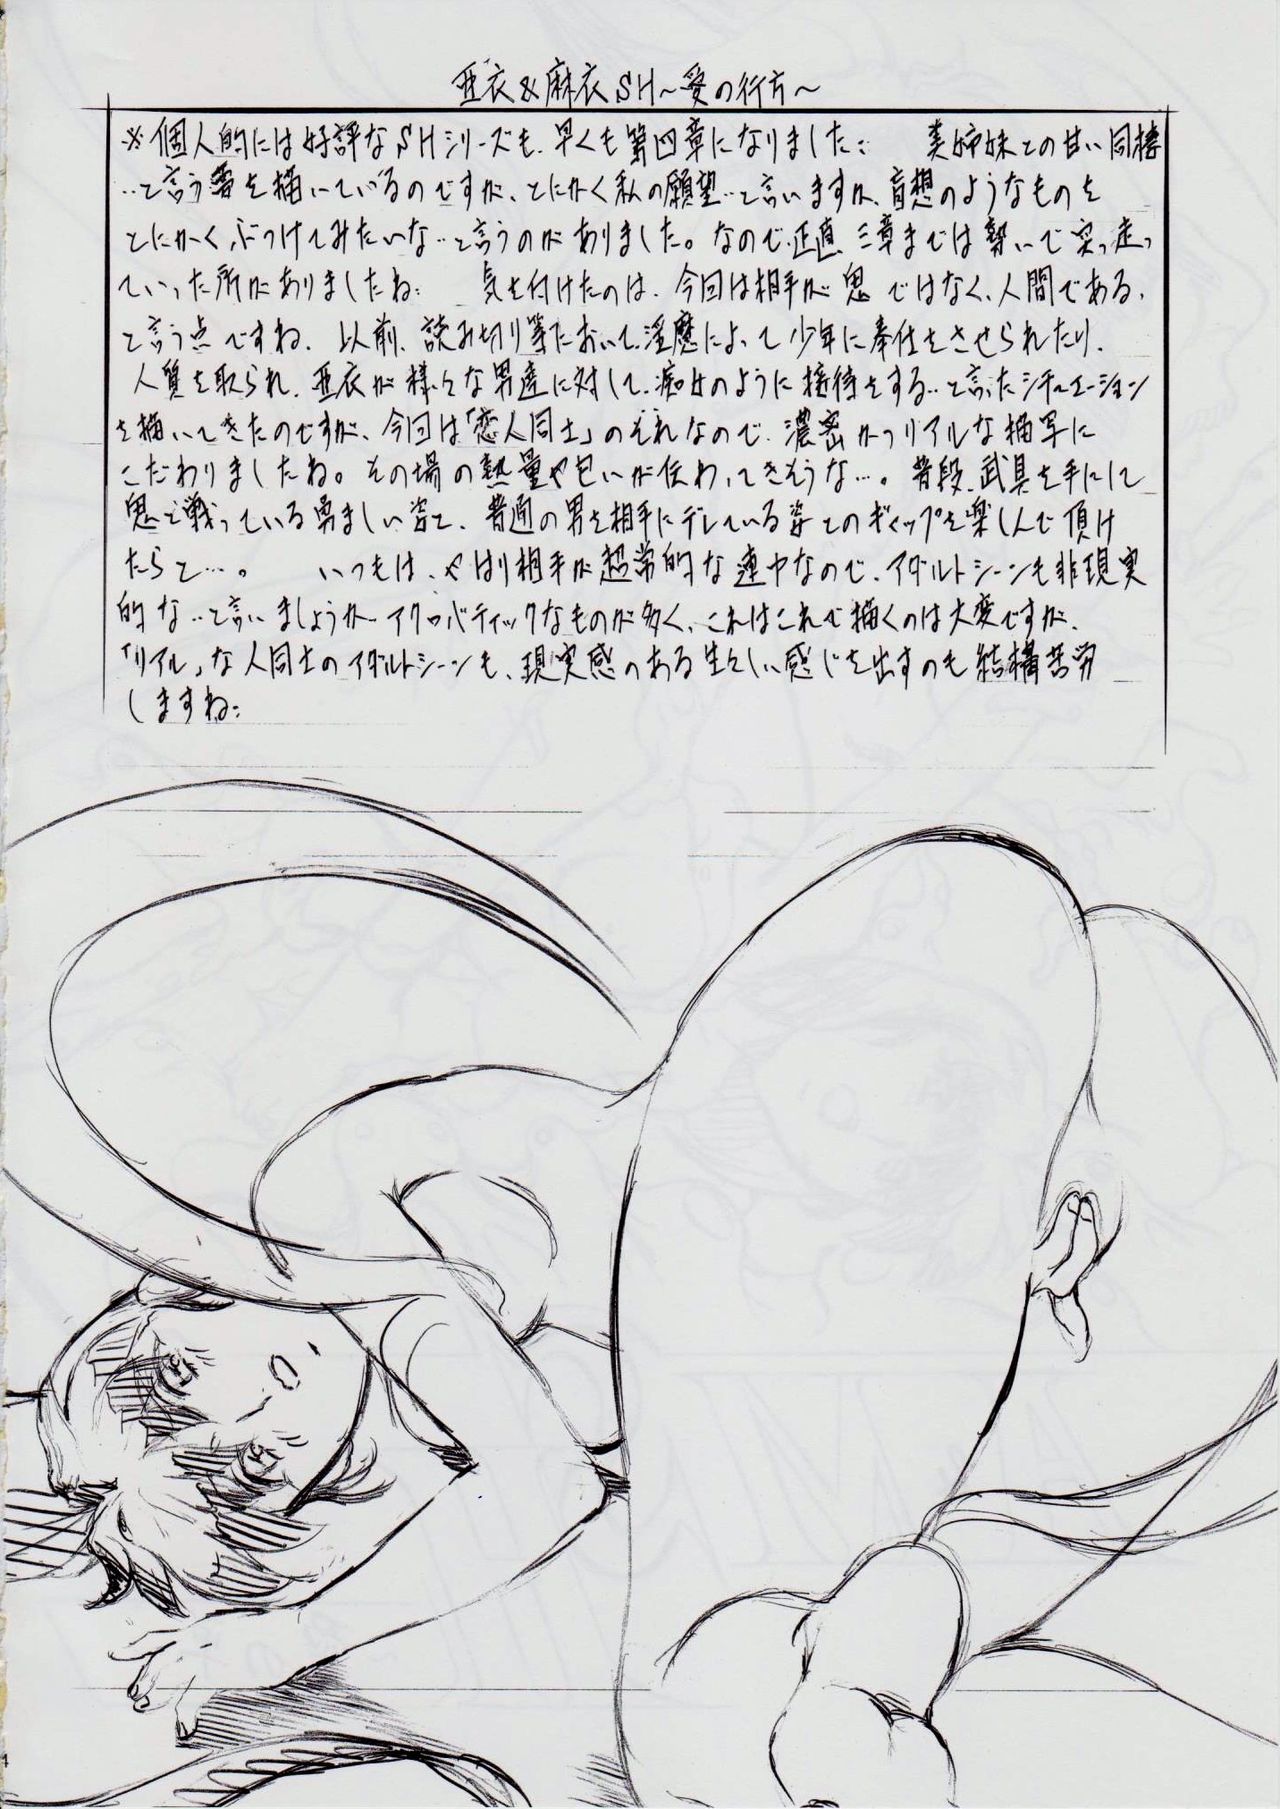 亜衣&麻衣SH~愛の行方~
※個人的には好評なSHシリーズも、早くも第四章になりました: 美姉妹との甘い同棲
‥と言う番を描いているのですが、とにかく私の願望‥と言いますか、盲想のようなものを
とにかくぶつけてみたいな‥と言うのがありました。なので、正直、三章までは勢いで突っ走っ
ていった所がありましたね: 気を付けたのは、今回は相手が鬼ではなく、人間である、
と言う点ですね。以前、読み切り等において、淫魔によって少年に奉仕をさせられたり、
人質を取られ、亜衣が様々な男達に対して、痴女のように接待をする‥と言ったシチュエーション
を描いてきたのですが、今回は「恋人同士」のそれなので、濃密かつリアルな描写に
こだわりましたね。その場の熱量や匂いが伝わってきそうな…。普段、武具を手にして
鬼と戦っている勇ましい姿と、普通の男を相手にデレている姿とのギャップを楽しんで頂け
たらと…。 いつもは、やはり相手が超常的な連中なので、アダルトシーンも非現実
的な‥と言いましょうか、アクロバティックなものが多く、これはこれで描くのは大変ですが、
「リアル」な人同士のアダルトシーンも、現実感のある生々しい感じを出すのも結構苦労
しますね:
4